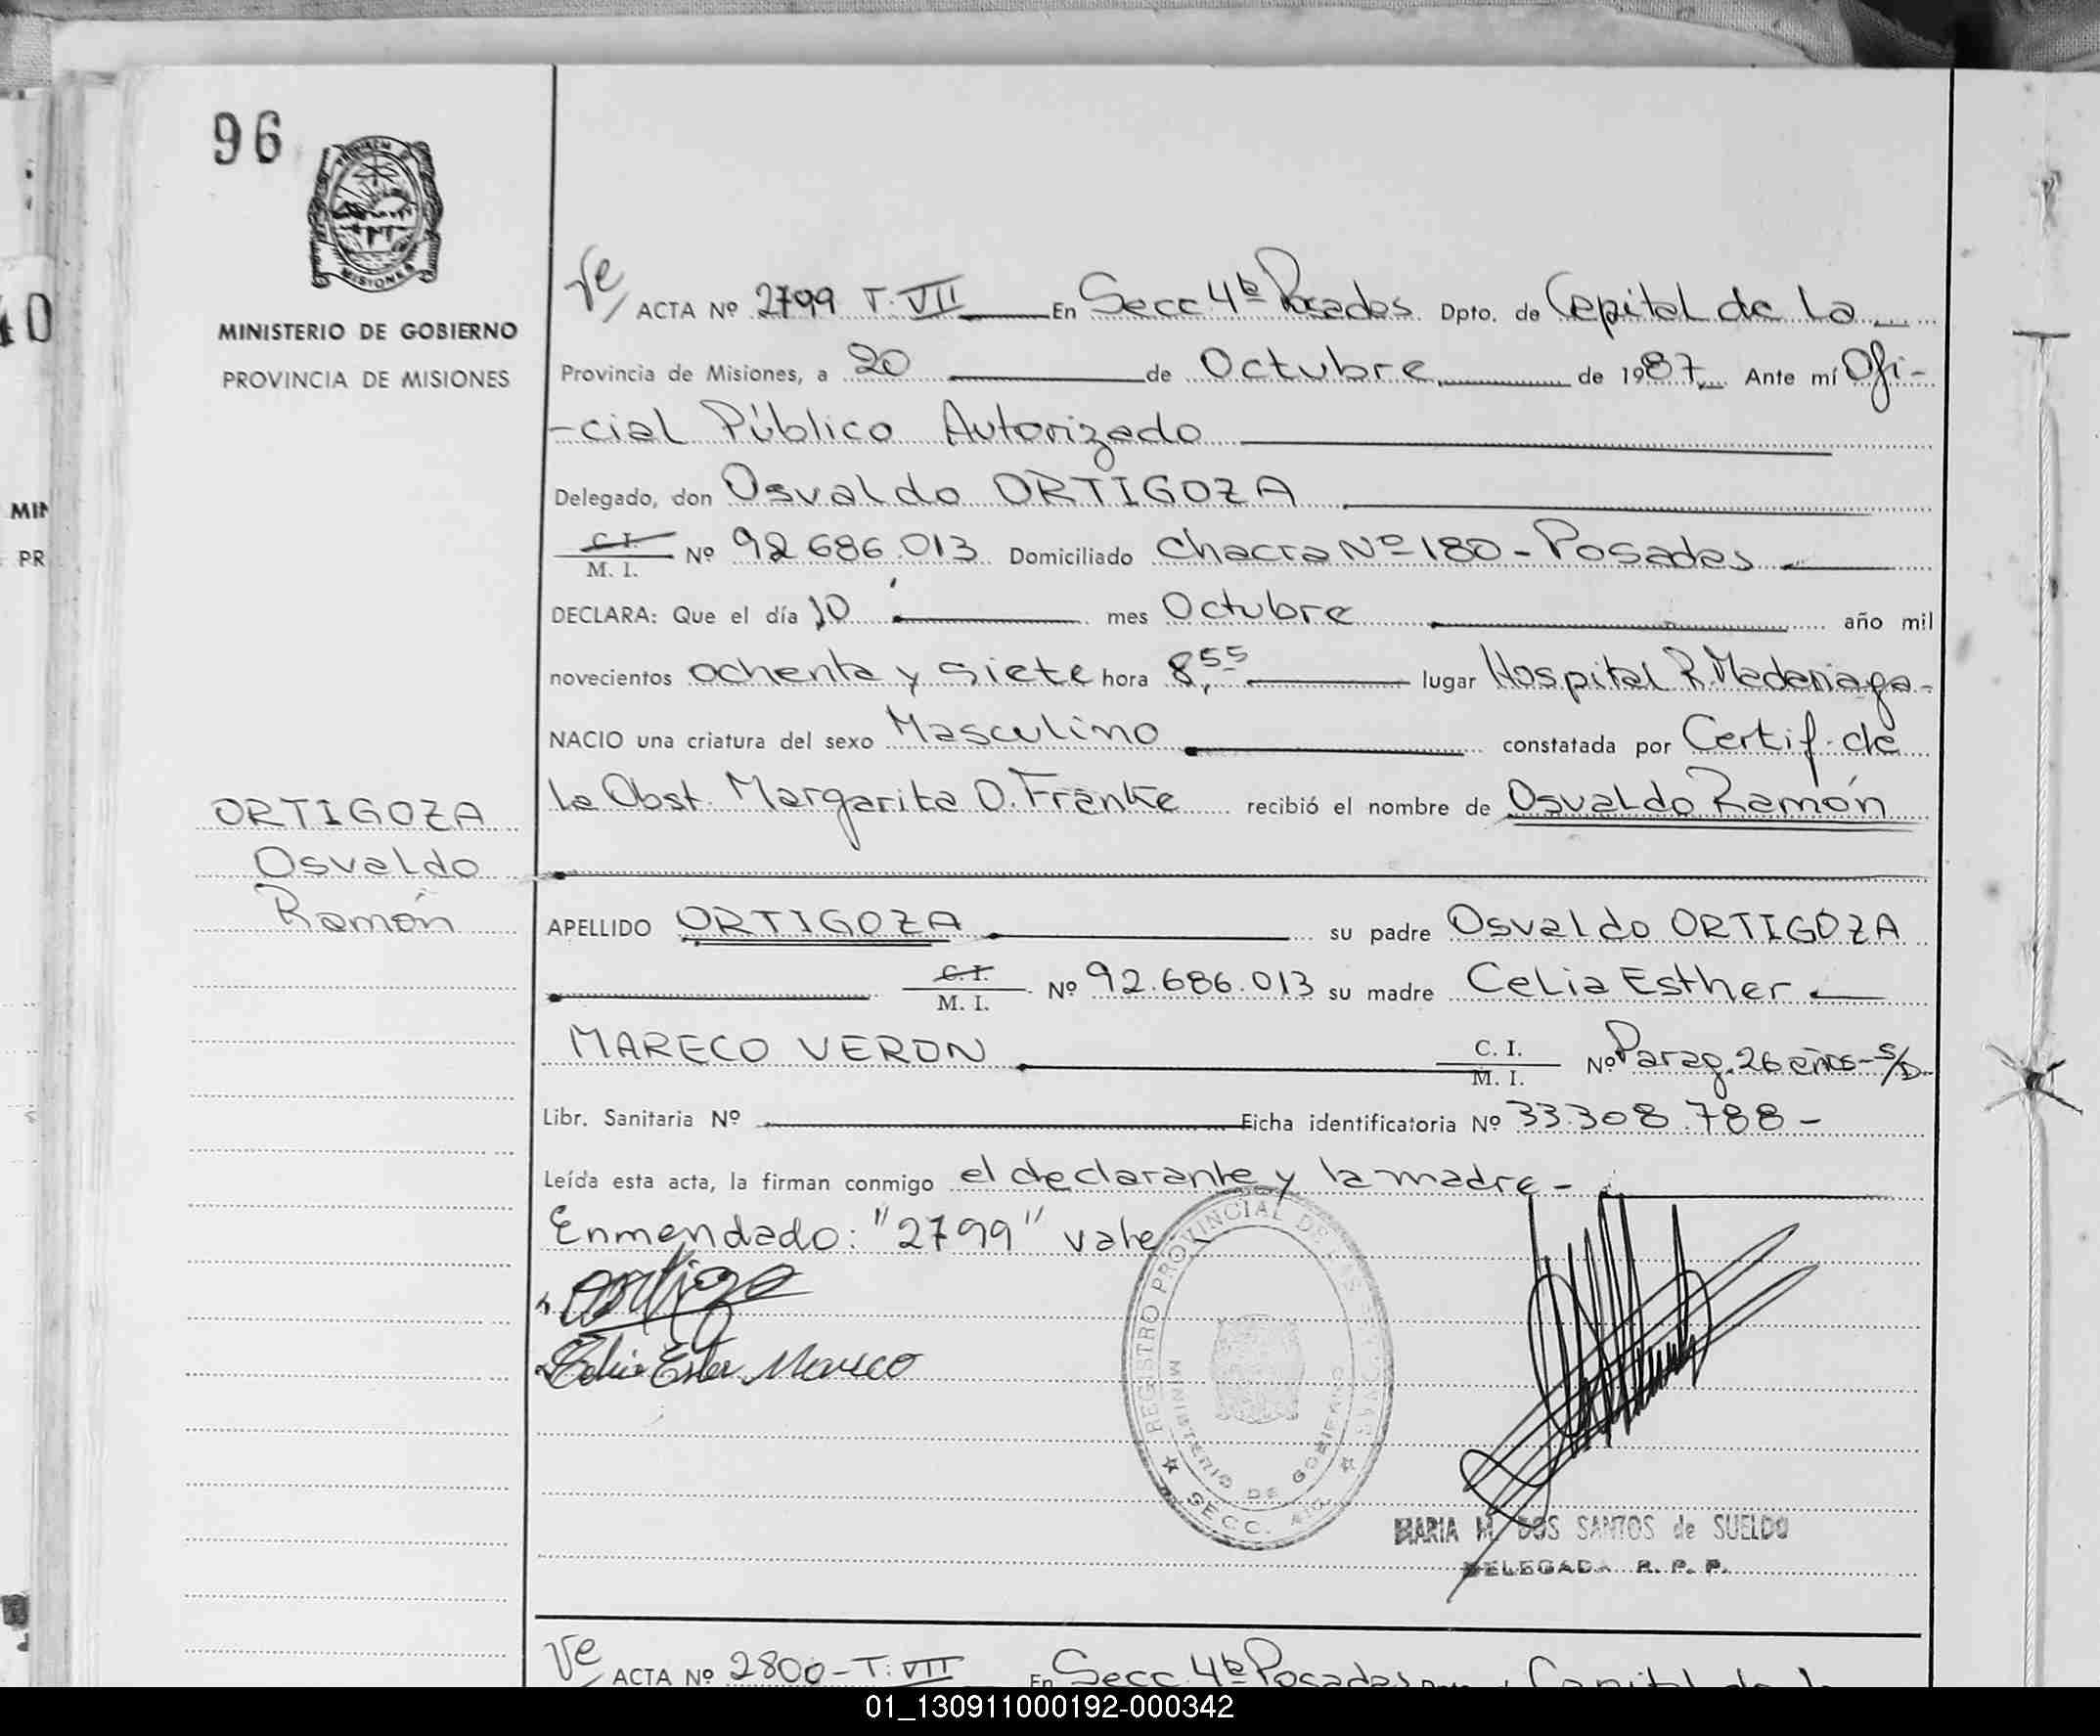 96
PROVINCIA
MISIONES
MINISTERIO DE GOBIERNO
PROVINCIA DE MISIONES
ORTIGOZA
Osvaldo
Ramón
Ve/ ACTA Nº 2799 T. VII En Secc 4ta Posadas Dpto. de Capital de la
Provincia de Misiones, a 20 de Octubre de 1987, Ante mí Ofi-
-cial Público Autorizado
Delegado, don Osvaldo ORTIGOZA
C. I. / M. I. Nº 92.686.013 Domiciliado Chacra Nº 180 - Posadas
DECLARA: Que el día 10 mes Octubre año mil
novecientos ochenta y siete hora 8,55 lugar Hospital R. Madariaga-
NACIO una criatura del sexo Masculino constatada por Certif. de
la Obst. Margarita D. Franke recibió el nombre de Osvaldo Ramón
APELLIDO ORTIGOZA su padre Osvaldo ORTIGOZA
C. I. / M. I. Nº 92.686.013 su madre Celia Esther
MARECO VERON C. I. / M. I. Nº Parag. 26 años - S/D.
Libr. Sanitaria Nº Ficha identificatoria Nº 33.308.788 -
Leída esta acta, la firman conmigo el declarante y la madre -
Enmendado: "2799" vale
Ester Mareco
REGISTRO PROVINCIAL DE LAS PERSONAS
MINISTERIO DE GOBIERNO
SECC.
MARIA M. DOS SANTOS de SUELDO
DELEGADA R. P. P.
Ve/ ACTA Nº 2800 - T. VII En Secc 4ta Posadas Capital de l
40
MIN
PR
01_130911000192-000342